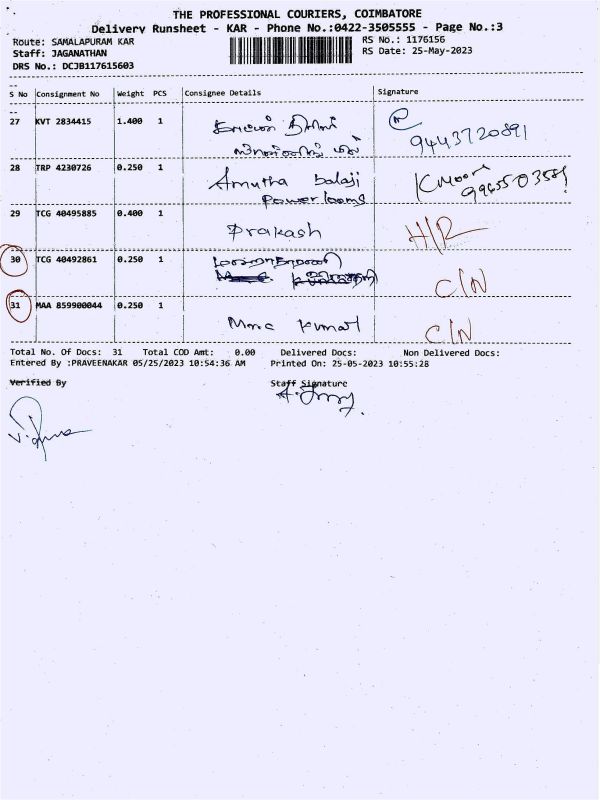 THE PROFESSIONAL COURIERS, COIMBATORE
Delivery Runsheet - KAR - Phone No.:0422-3505555 - Page No.:3
Route: SAMALAPURAM KAR RS No.: 1176156
Staff: JAGANATHAN RS Date: 25-May-2023
DRS No.: DCJB117615603
S No Consignment No Weight PCS Consignee Details Signature
27 KVT 2834415 1.400 1
9443720891
28 TRP 4230726 0.250 1 Amutha balaji
Powerlooms
29 TCG 40495885 0.400 1 Prakash H/R
30 TCG 40492861 0.250 1
C/N
31 MAA 859900044 0.250 1 Kumar C/N
Total No. Of Docs: 31 Total COD Amt: 0.00 Delivered Docs: Non Delivered Docs:
Entered By :PRAVEENAKAR 05/25/2023 10:54:36 AM Printed On: 25-05-2023 10:55:28
Verified By Staff Signature